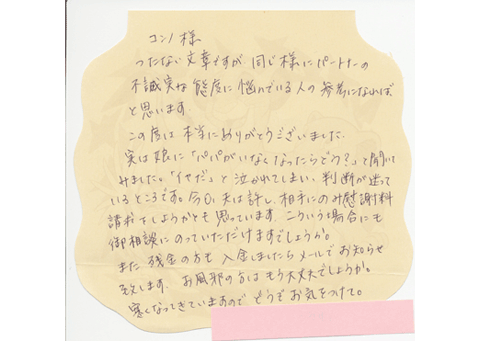 コンノ様
つたない文章ですが 同じ様にパートナーの
不誠実な態度に悩んでいる人の参考になれば
と思います。
この度は本当にありがとうございました。
実は娘に「パパがいなくなったらどう?」って聞いて
みました。「イヤだ」と泣かれてしまい、判断が迷って
いるところです。今回、夫は許し、相手にのみ慰謝料
請求をしようかとも思っています。こういう場合にも
御相談にのっていただけますでしょうか。
また 残金の方も 入金しましたらメールでお知らせ
致します。お風邪の方はもう大丈夫でしょうか。
寒くなってきていますので どうぞ お気をつけて。